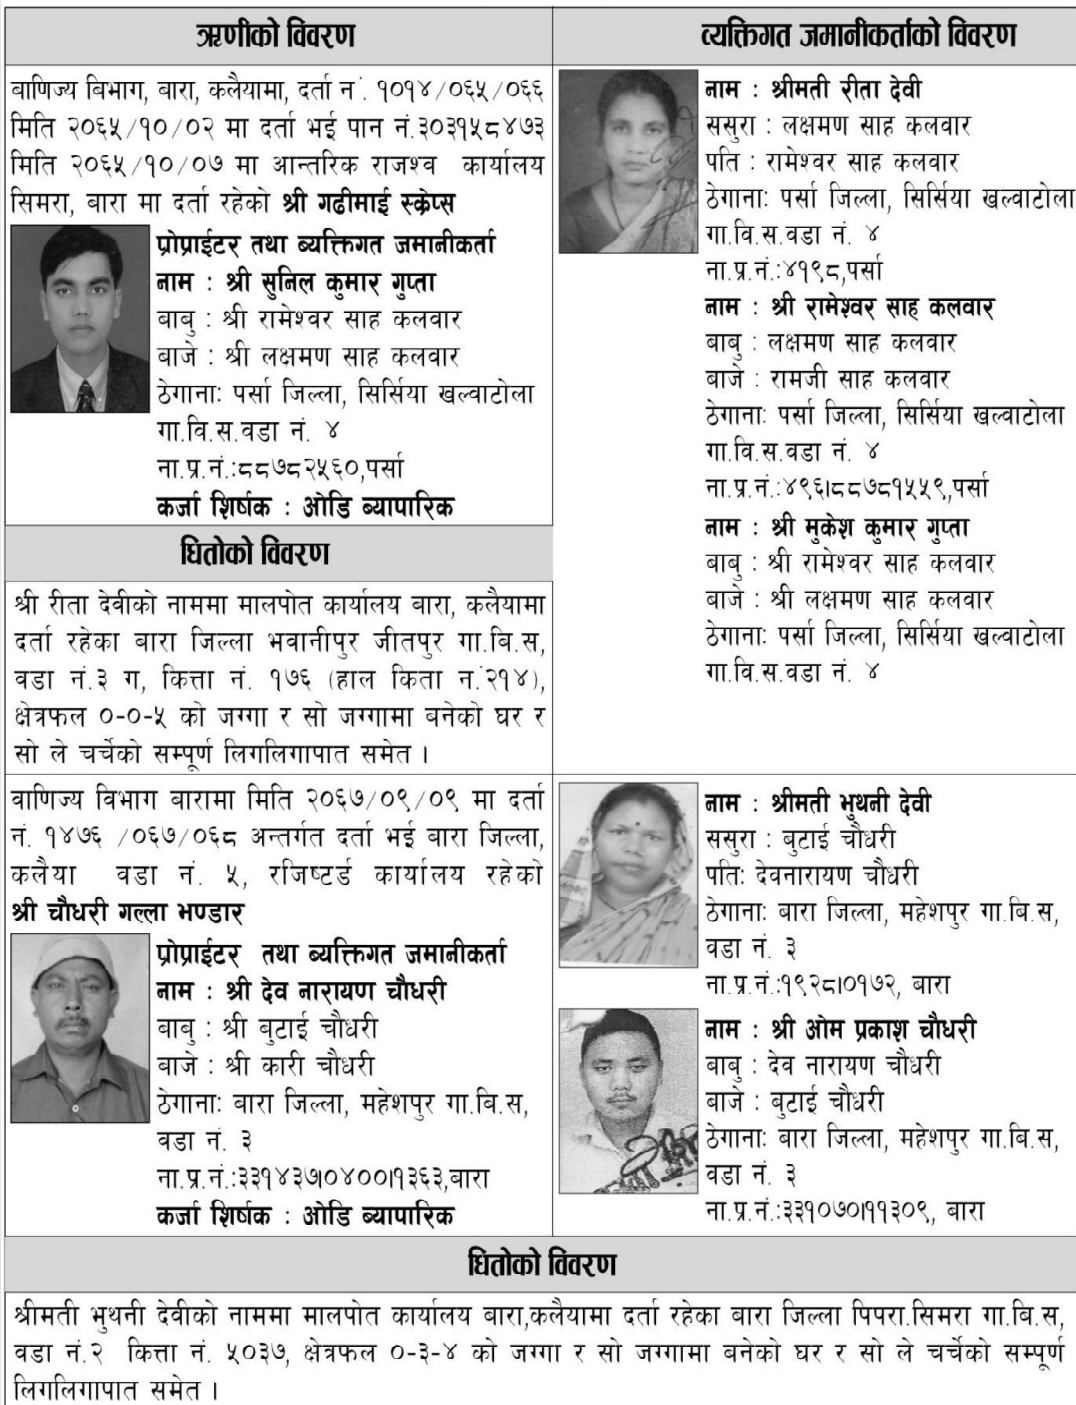 ऋणीको विवरण
बाणिज्य बिभाग, बारा, कलैयामा, दर्ता नं. १०१४/०६५/०६६
मिति २०६५/१०/०२ मा दर्ता भई पान नं.३०३१५८४७३
मिति २०६५/१०/०७ मा आन्तरिक राजश्व कार्यालय
सिमरा, बारा मा दर्ता रहेको श्री गढीमाई स्क्रेप्स
प्रोप्राईटर तथा ब्यक्तिगत जमानीकर्ता
नाम : श्री सुनिल कुमार गुप्ता
बाबु : श्री रामेश्वर साह कलवार
बाजे : श्री लक्षमण साह कलवार
ठेगानाः पर्सा जिल्ला, सिर्सिया खल्वाटोला
गा.वि.स.वडा नं. ४
ना.प्र.नं.:८८७८२५६०,पर्सा
कर्जा शिर्षक : ओडि ब्यापारिक
धितोको विवरण
श्री रीता देवीको नाममा मालपोत कार्यालय बारा, कलैयामा
दर्ता रहेका बारा जिल्ला भवानीपुर जीतपुर गा.बि.स,
वडा नं.३ ग, कित्ता नं. १७६ (हाल किता नं.२१४),
क्षेत्रफल ०-०-५ को जग्गा र सो जग्गामा बनेको घर र
सो ले चर्चेको सम्पूर्ण लिगलिगापात समेत ।
व्यक्तिगत जमानीकर्ताको विवरण
नाम : श्रीमती रीता देवी
ससुरा : लक्षमण साह कलवार
पति : रामेश्वर साह कलवार
ठेगानाः पर्सा जिल्ला, सिर्सिया खल्वाटोला
गा.वि.स.वडा नं. ४
ना.प्र.नं.:४१९८,पर्सा
नाम : श्री रामेश्वर साह कलवार
बाबु : लक्षमण साह कलवार
बाजे : रामजी साह कलवार
ठेगानाः पर्सा जिल्ला, सिर्सिया खल्वाटोला
गा.वि.स.वडा नं. ४
ना.प्र.नं.:४९६।८८७८१५५९,पर्सा
नाम : श्री मुकेश कुमार गुप्ता
बाबु : श्री रामेश्वर साह कलवार
बाजे : श्री लक्षमण साह कलवार
ठेगानाः पर्सा जिल्ला, सिर्सिया खल्वाटोला
गा.वि.स.वडा नं. ४
वाणिज्य विभाग बारामा मिति २०६७/०९/०९ मा दर्ता
नं. १४७६ /०६७/०६८ अन्तर्गत दर्ता भई बारा जिल्ला,
कलैया वडा नं. ५, रजिष्टर्ड कार्यालय रहेको
श्री चौधरी गल्ला भण्डार
प्रोप्राईटर तथा ब्यक्तिगत जमानीकर्ता
नाम : श्री देव नारायण चौधरी
बाबु : श्री बुटाई चौधरी
बाजे : श्री कारी चौधरी
ठेगानाः बारा जिल्ला, महेशपुर गा.बि.स,
वडा नं. ३
ना.प्र.नं.:३३१४३७।०४००।१३६३,बारा
कर्जा शिर्षक : ओडि ब्यापारिक
नाम : श्रीमती भुथनी देवी
ससुरा : बुटाई चौधरी
पतिः देवनारायण चौधरी
ठेगानाः बारा जिल्ला, महेशपुर गा.बि.स,
वडा नं. ३
ना.प्र.नं.:१९२८।०१७२, बारा
नाम : श्री ओम प्रकाश चौधरी
बाबु : देव नारायण चौधरी
बाजे : बुटाई चौधरी
ठेगानाः बारा जिल्ला, महेशपुर गा.बि.स,
वडा नं. ३
ना.प्र.नं.:३३१०७०।११३०९, बारा
धितोको विवरण
श्रीमती भुथनी देवीको नाममा मालपोत कार्यालय बारा,कलैयामा दर्ता रहेका बारा जिल्ला पिपरा.सिमरा गा.बि.स,
वडा नं.२ कित्ता नं. ५०३७, क्षेत्रफल ०-३-४ को जग्गा र सो जग्गामा बनेको घर र सो ले चर्चेको सम्पूर्ण
लिगलिगापात समेत ।